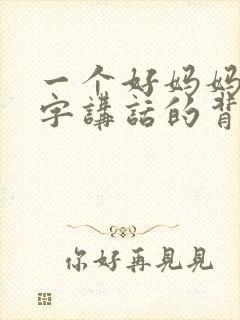 一个好妈妈
字講話的背
你好再見見